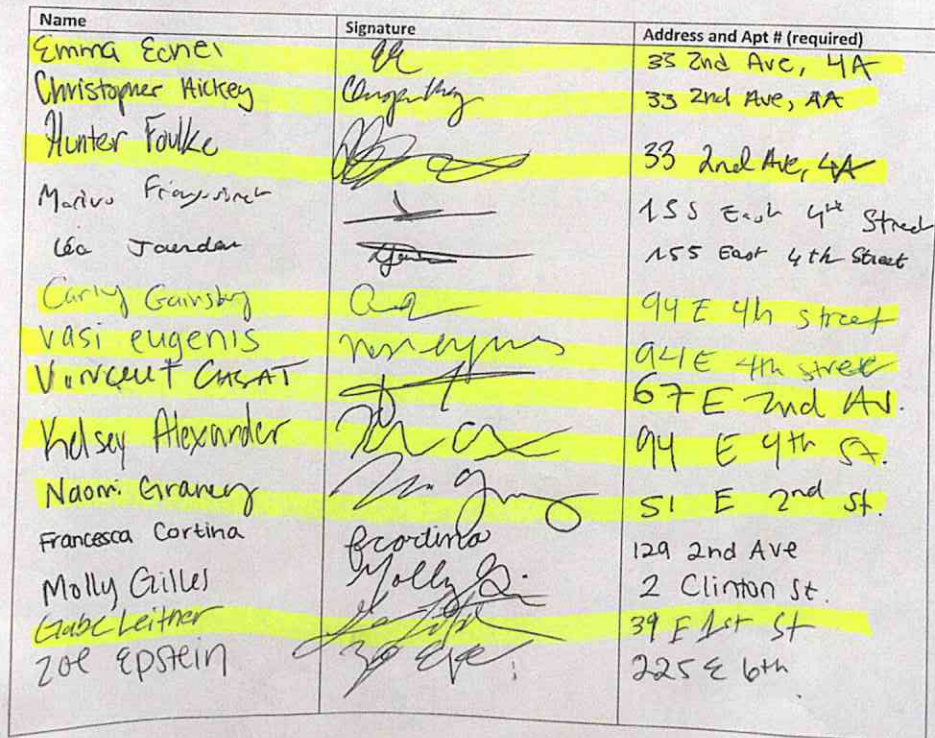 Name Signature Address and Apt # (required)
Emma Ecnel 33 2nd Ave, 4A
Christopher Hickey 33 2nd Ave, 4A
Hunter Foulke 33 2nd Ave, 4A
155 East 4th Street
Léa Jourdan 155 East 4th Street
Carly Gainsby 94 E 4th street
vasi eugenis 94 E 4th street
Vincent 67 E 2nd AV.
Kelsey Alexander 94 E 4th St.
Naomi Graney 51 E 2nd St.
Francesca Cortina fcortina 129 2nd Ave
Molly Gilles Molly G. 2 Clinton St.
Gabe Leitner 39 E 1st St
Zoe Epstein 225 E 6th